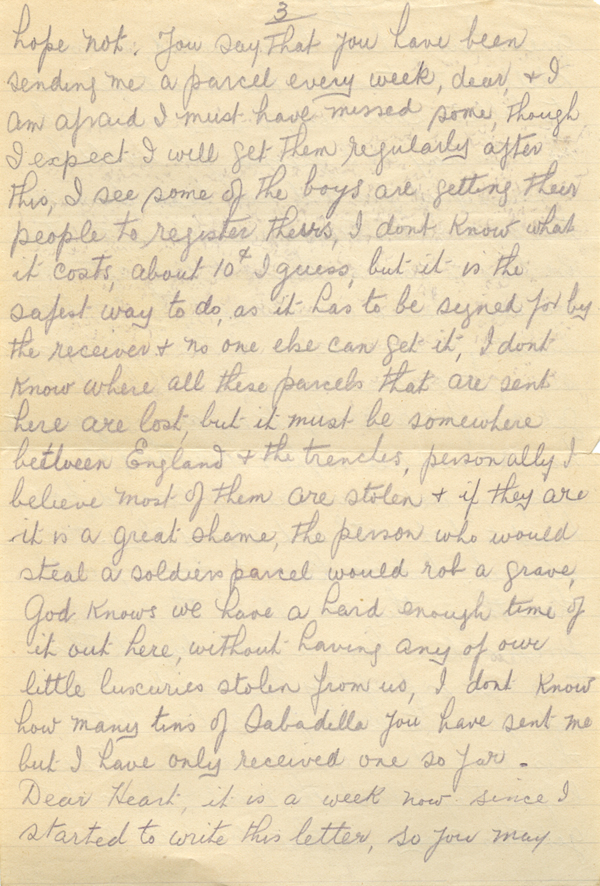 3
hope not. You say that you have been
sending me a parcel every week, dear, & I
am afraid I must have missed some, though
I expect I will get them regularly after
this, I see some of the boys are getting their
people to register theirs, I dont know what
it costs, about 10¢ I guess, but it is the
safest way to do, as it has to be signed for by
the receiver & no one else can get it, I dont
know where all these parcels that are sent
here are lost, but it must be somewhere
between England & the trenches, personally I
believe most of them are stolen & if they are
it is a great shame, the person who would
steal a soldiers parcel would rob a grave,
God knows we have a hard enough time of
it out here, without having any of our
little luxuries stolen from us, I dont know
how many tins of Sabadilla you have sent me
but I have only received one so far.
Dear Heart, it is a week now since I
started to write this letter, so you may